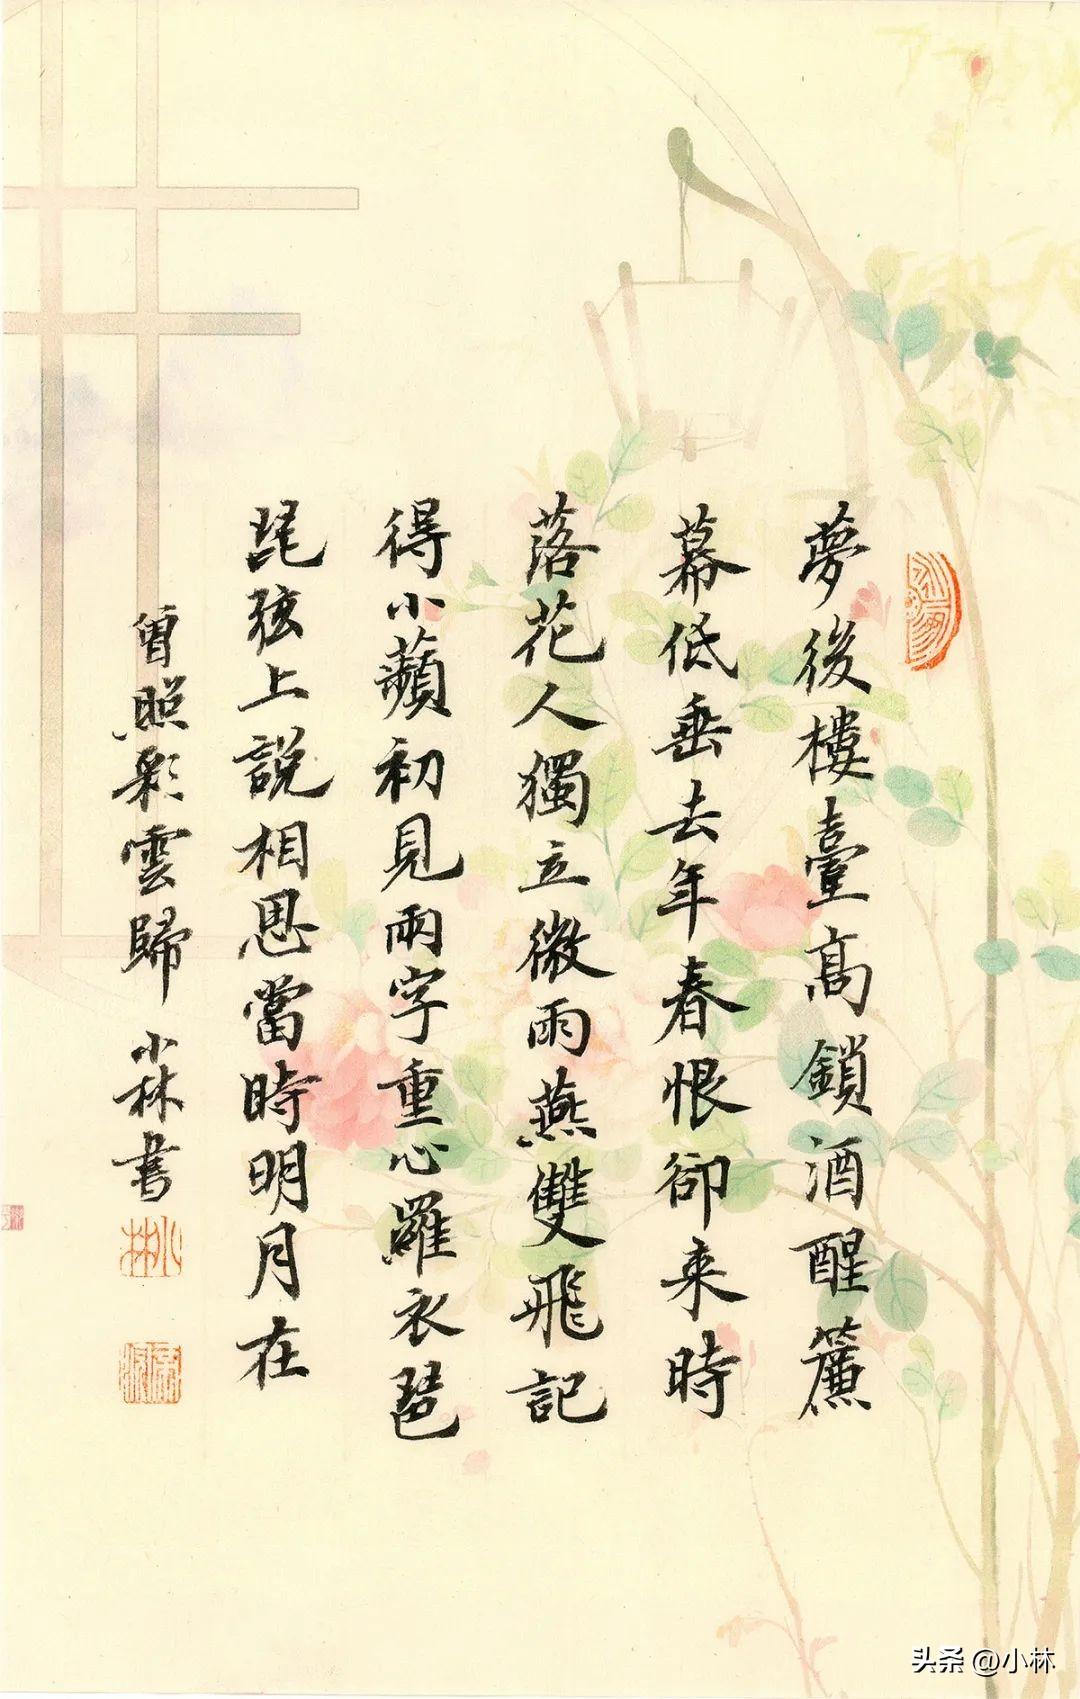 夢後樓臺高鎖酒醒簾
幕低垂去年春恨卻来時
落花人獨立微雨燕雙飛記
得小蘋初見兩字重心羅衣琶
琵弦上說相思當時明月在
曾照彩雲歸 小林書
小林
头条 @小林